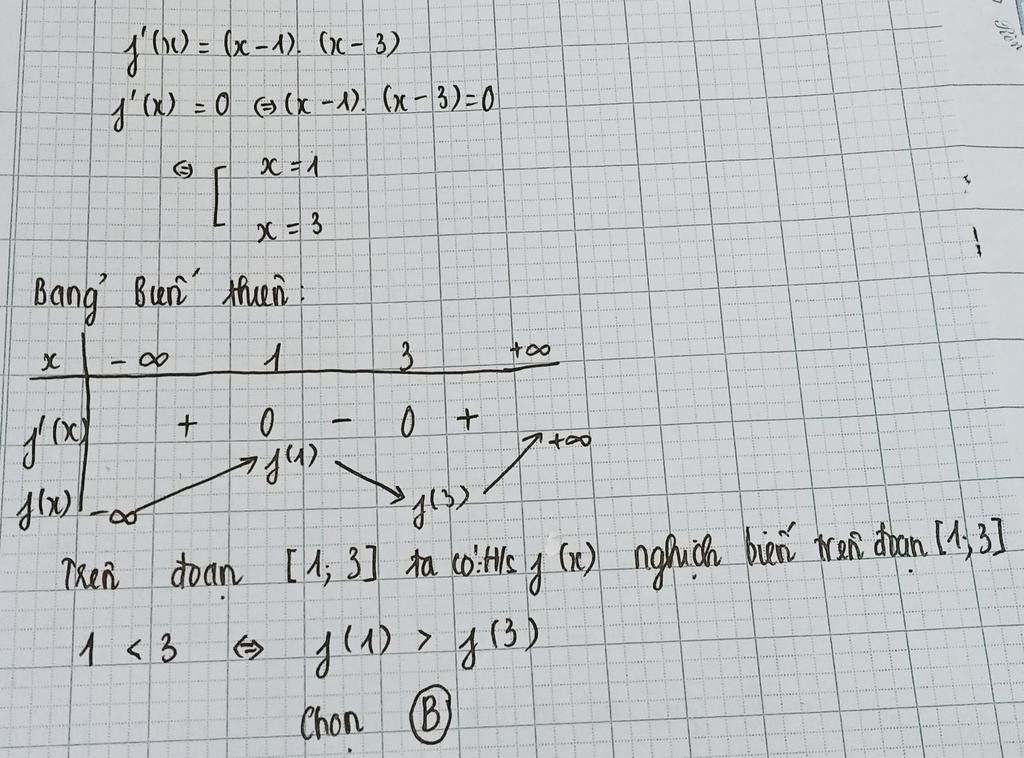 f'(x) = (x-1). (x-3)
f'(x) = 0 ⇔ (x-1). (x-3)=0
⇔ [ x = 1
x = 3
Bảng Biến thiên :
x -∞ 1 3 +∞
f'(x) + 0 - 0 +
f(x) -∞ ↗ f(1) ↘ f(3) ↗ +∞
Trên đoạn [1; 3] ta có: H/s f(x) nghịch biến trên đoạn [1; 3]
1 < 3 ⇔ f(1) > f(3)
Chọn B